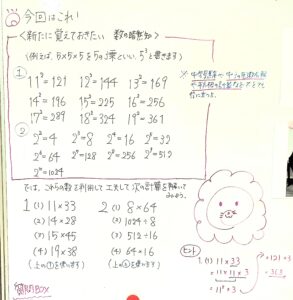 今回はこれ!
<新たに覚えておきたい 数の暗記>
(例えば、5×5×5を5の3乗といい、5³と書きます)
①
11²=121 12²=144 13²=169
14²=196 15²=225 16²=256
17²=289 18²=324 19²=361
②
2²=4 2³=8 2⁴=16 2⁵=32
2⁶=64 2⁷=128 2⁸=256 2⁹=512
2¹⁰=1024
では、これらの数を利用して工夫して次の計算を解いてみよう。
1 (1) 11×33
(2) 14×28
(3) 15×45
(4) 19×38
(上の①を使います)
2 (1) 8×64
(2) 1024÷8
(3) 512÷16
(4) 64×16
(上の②を使います)
ヒント
1.(1) 11×33
=11×11×3
=11²×3
=121×3
=363
質問BOX